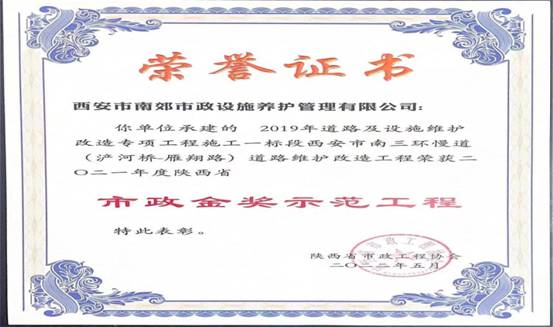 荣誉证书
西安市南郊市政设施养护管理有限公司:
你单位承建的 2019年道路及设施维护
改造专项工程施工一标段西安市南三环慢道
（浐河桥-雁翔路）道路维护改造工程荣获二
〇二一年度陕西省
市政金奖示范工程
特此表彰。
陕西省市政工程协会
二〇二二年五月